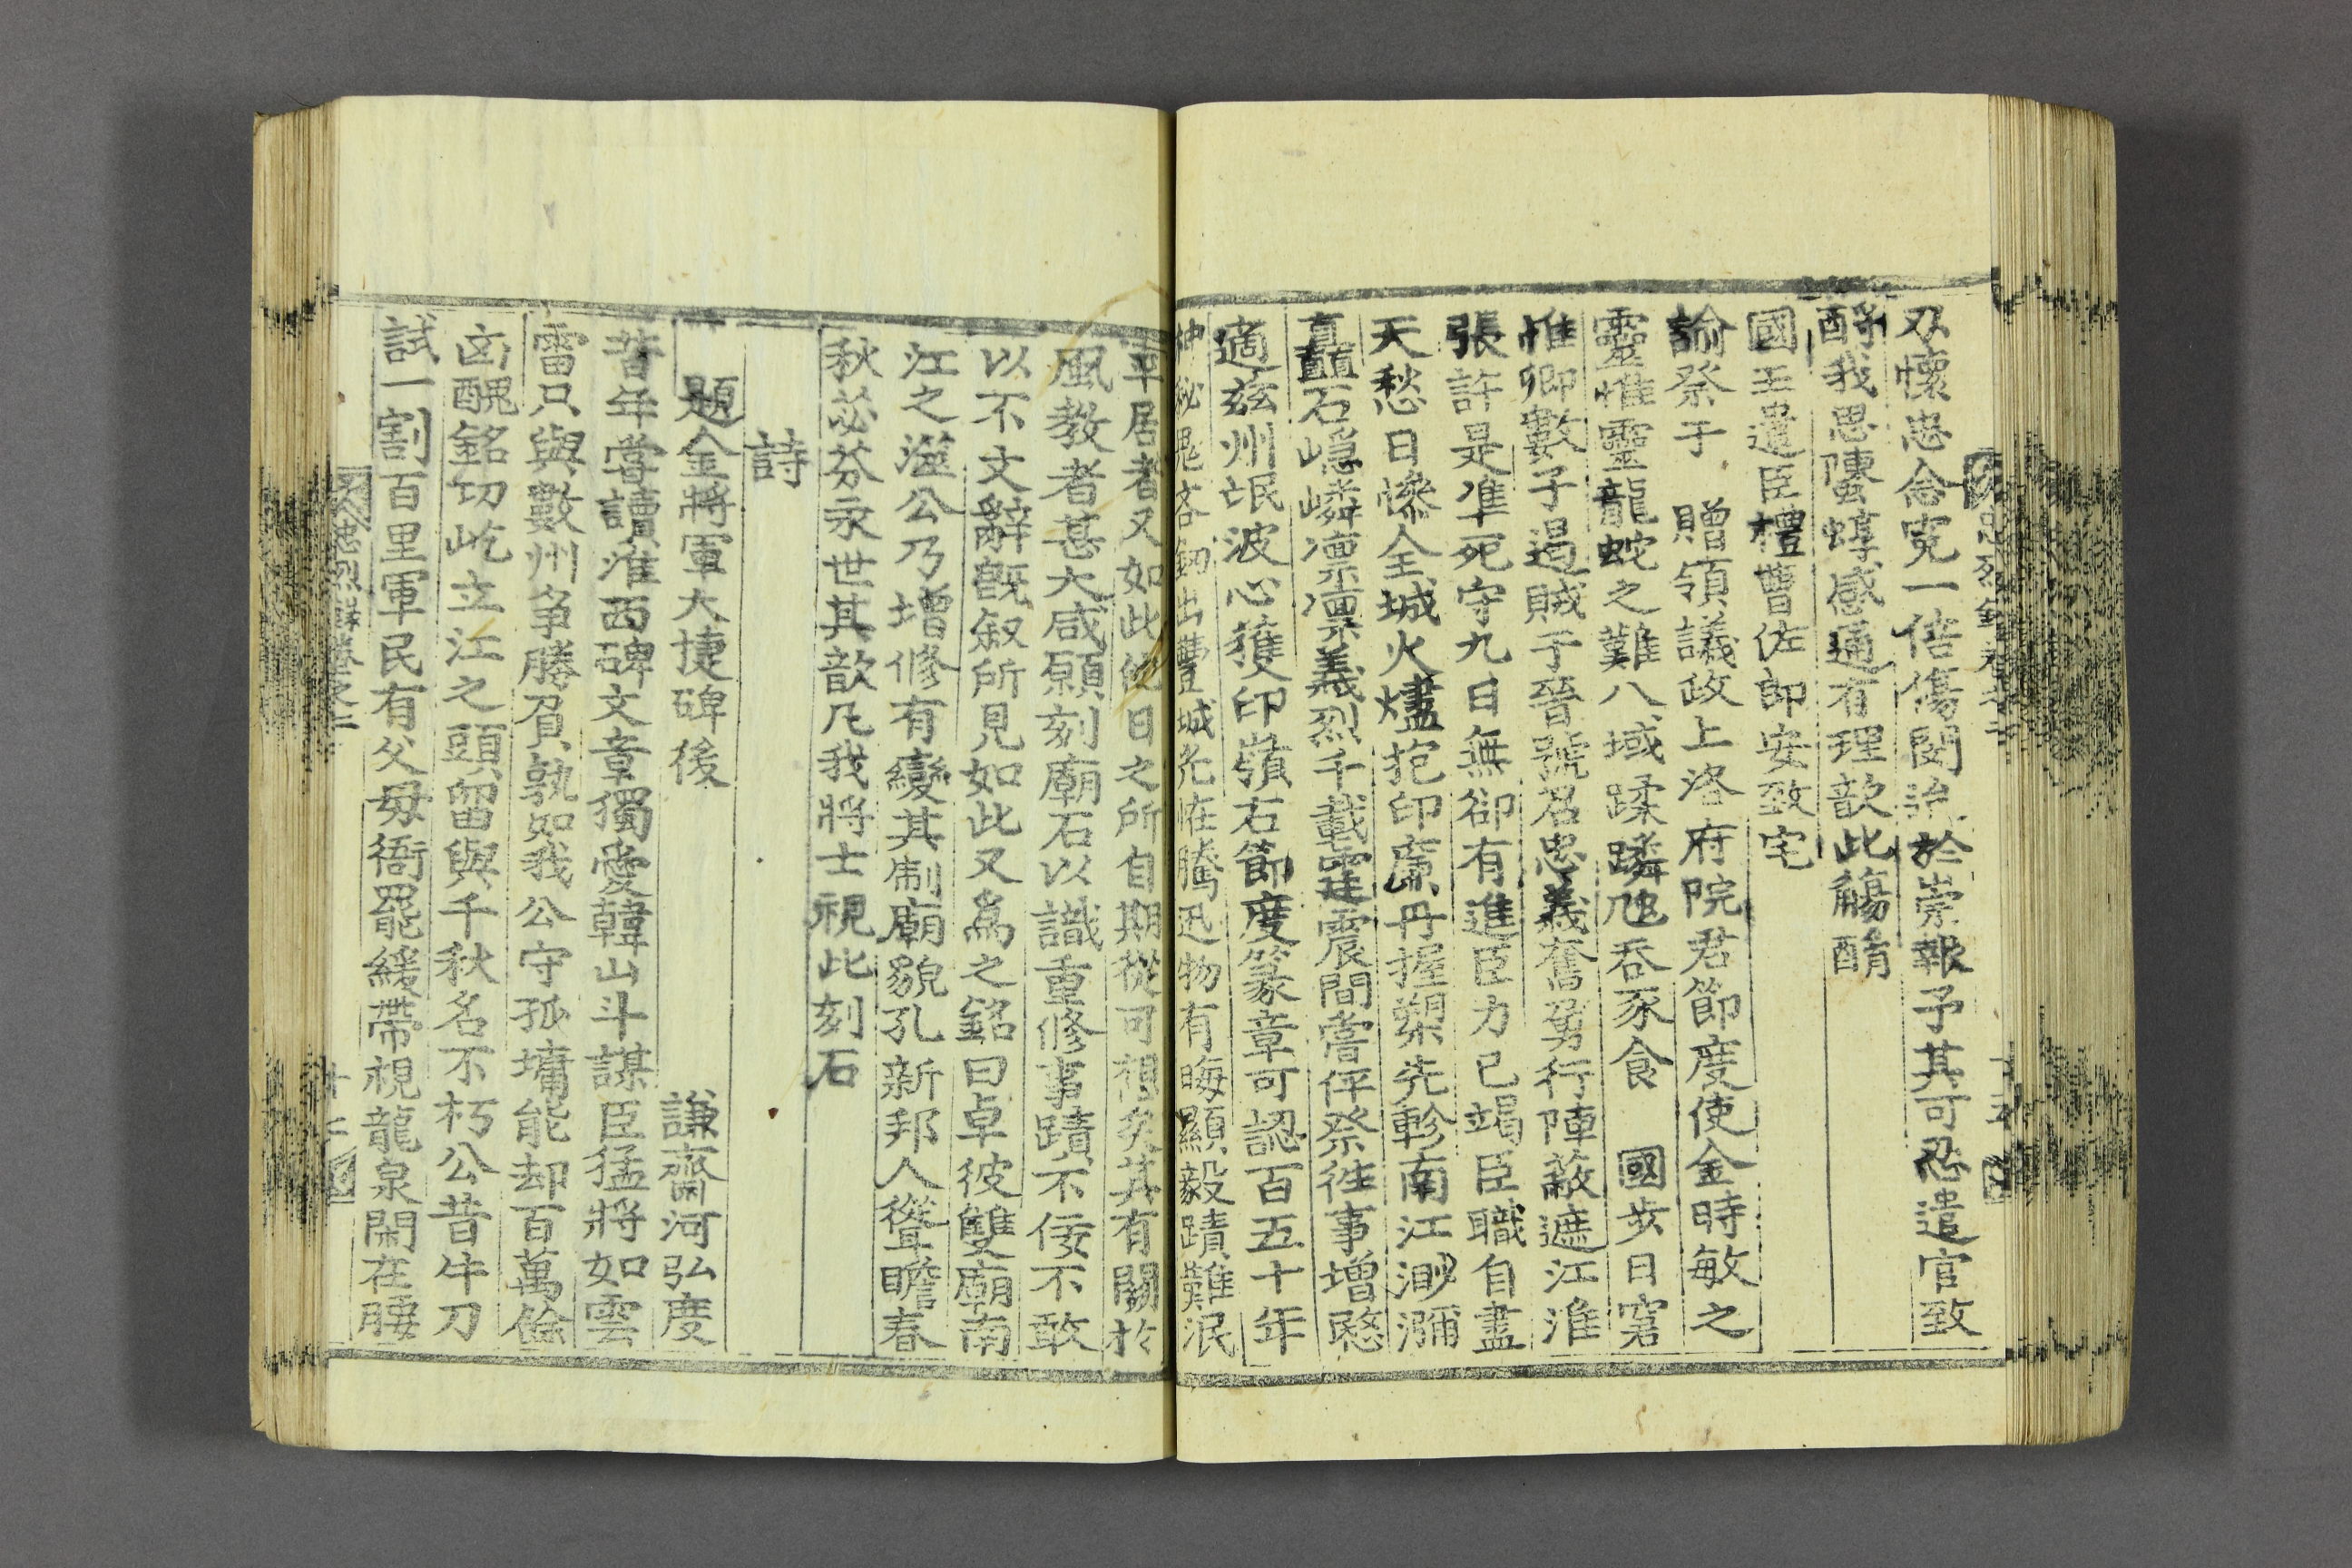 忠烈錄卷之二
刄懷忠念寃一倍傷閔訖於崇報予其可忍遣官致
酹我思隱蝫感通有理歆此觴酳
國王遣臣禮曹佐郞安致宅
諭祭于 贈領議政上洛府院君節度使金時敏之
靈惟靈龍蛇之難八域蹂躪虺吞豕食 國步日窘
惟卿數子遏賊于晉號召忠義奮勇行陣蔽遮江淮
張許是準死守九日無卻有進臣力已竭臣職自盡
天愁日慘全城火燼抱印廪丹握槊先軫南江渺瀰
矗石嶾嶙凛凛義烈千載霆震間嘗伻祭往事增愍
適玆州氓波心獲印嶺石節度篆章可認百五十年
神秘鬼吝釰出豐城光怪騰迅物有晦顯毅蹟難泯
平居者又如此他日之所自期從可想矣其有關於
風敎者甚大咸願刻廟石以識重修事蹟不侫不敢
以不文辭旣叙所見如此又爲之銘曰卓彼雙廟南
江之滋公乃增修有變其制廟貌孔新邦人聳瞻春
秋苾芬永世其歆凡我將士視此刻石
詩
題金將軍大捷碑後 謙齋河弘度
昔年嘗讀淮西碑文章獨愛韓山斗謀臣猛將如雲
雷只與數州爭勝負孰如我公守孤墉能却百萬餘
凶醜銘切屹立江之頭留與千秋名不朽公昔牛刀
試一割百里軍民有父母衙罷緩帶視龍泉閑在腰
忠烈錄卷之二
十二